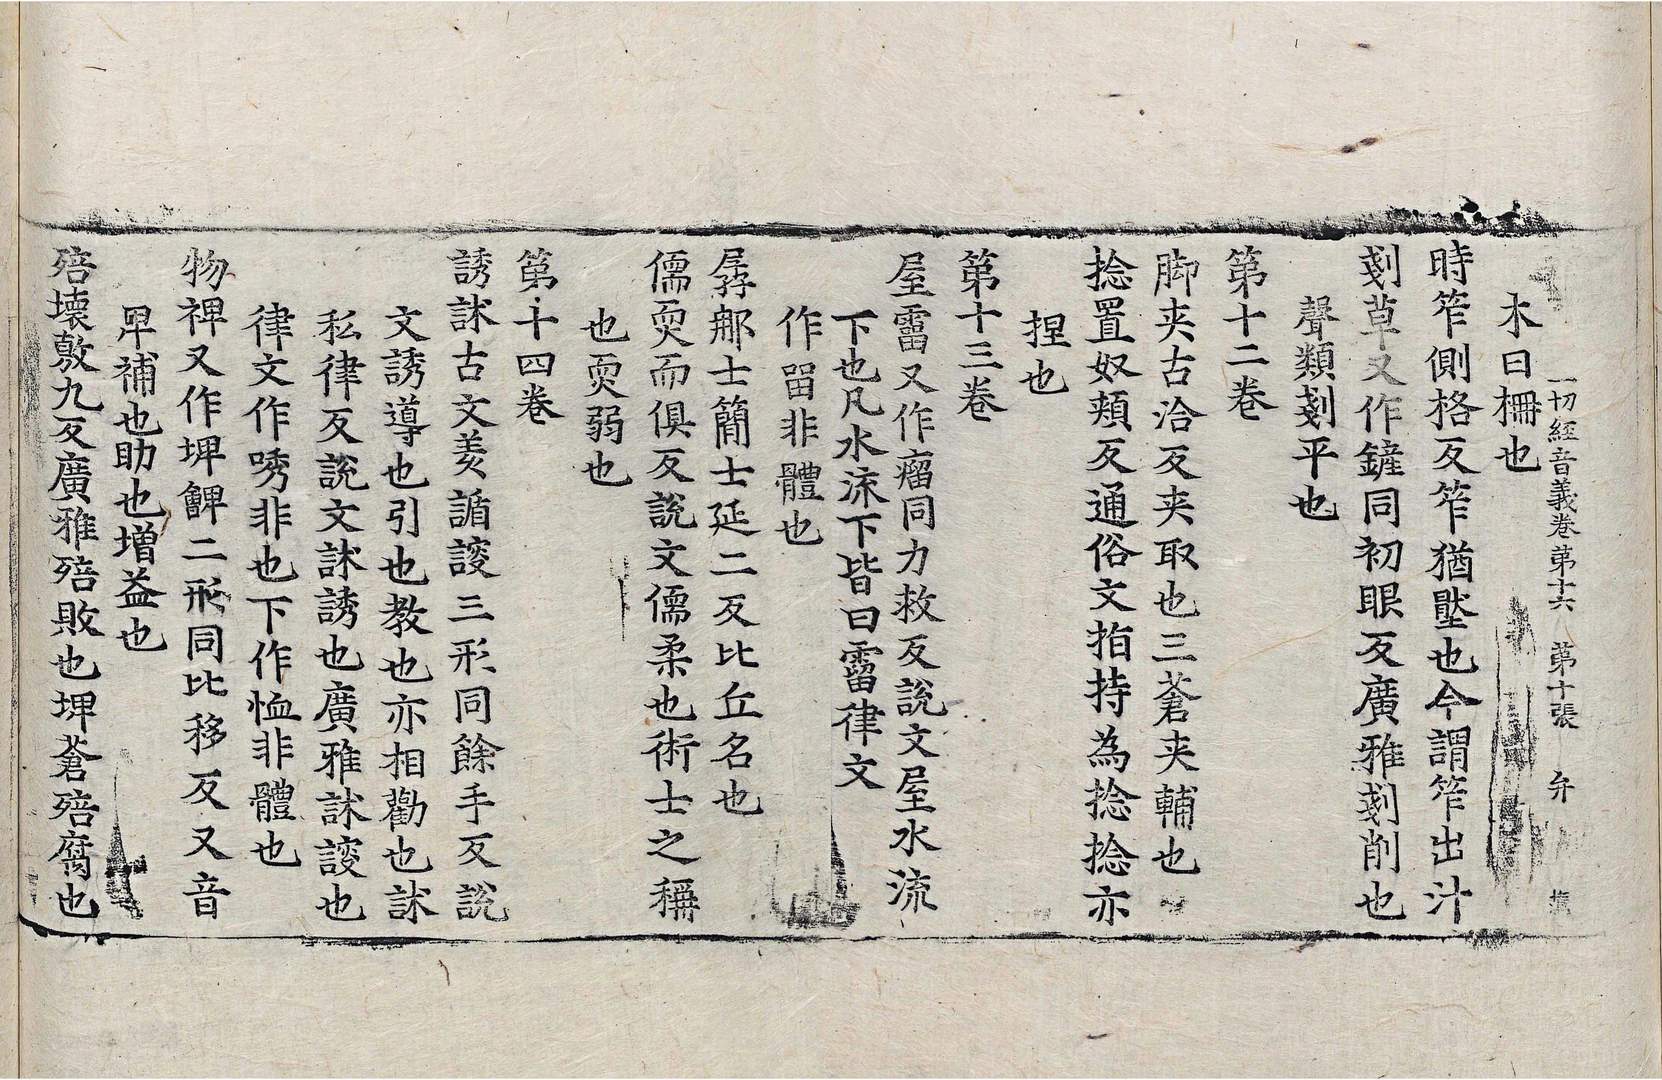 一切經音義卷第十六　第十張　弁
木曰柵也
時笮側格反笮猶壓也今謂笮出汁
剗草又作鏟同初眼反廣雅剗削也
聲類剗平也
第十二卷
脚夾古洽反夾取也三蒼夾輔也
捻置奴頰反通俗文拍持為捻捻亦
捏也
第十三卷
屋霤又作廇同力救反說文屋水流
下也凡水流下皆曰霤律文
作畱非體也
孱郍士簡士延二反比丘名也
儒耎而俱反說文儒柔也術士之稱
也耎弱也
第十四卷
誘訹古文羑䛻䛢三形同餘手反說
文誘導也引也教也亦相勸也訹
私律反說文訹誘也廣雅訹䛢也
律文作唀非也下作恤非體也
物裨又作埤𩌰二形同比移反又音
卑補也助也增益也
㱙壞敷九反廣雅㱙敗也埤蒼㱙腐也